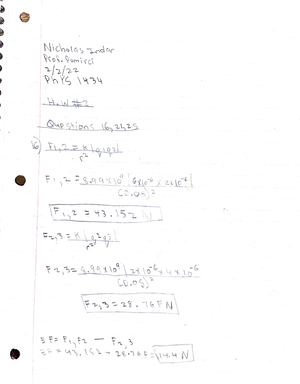 Nicholas Indar
Prof. Damirci
2/2/22
PHYS 1434
H.W #2
Questions 16, 24, 25
16) F1,2 = K |q1 q2| / r²
F1,2 = 8.99x10⁹ | 6x10⁻⁶ x 2x10⁻⁶ | / (0.05)²
F1,2 = 43.152 N
F2,3 = K |q2 q3| / r²
F2,3 = 8.99x10⁹ | 2x10⁻⁶ x 4x10⁻⁶ | / (0.05)²
F2,3 = 28.768 N
ΣF = F1,F2 — F2,3
ΣF = 43.152 - 28.768 = 14.4 N